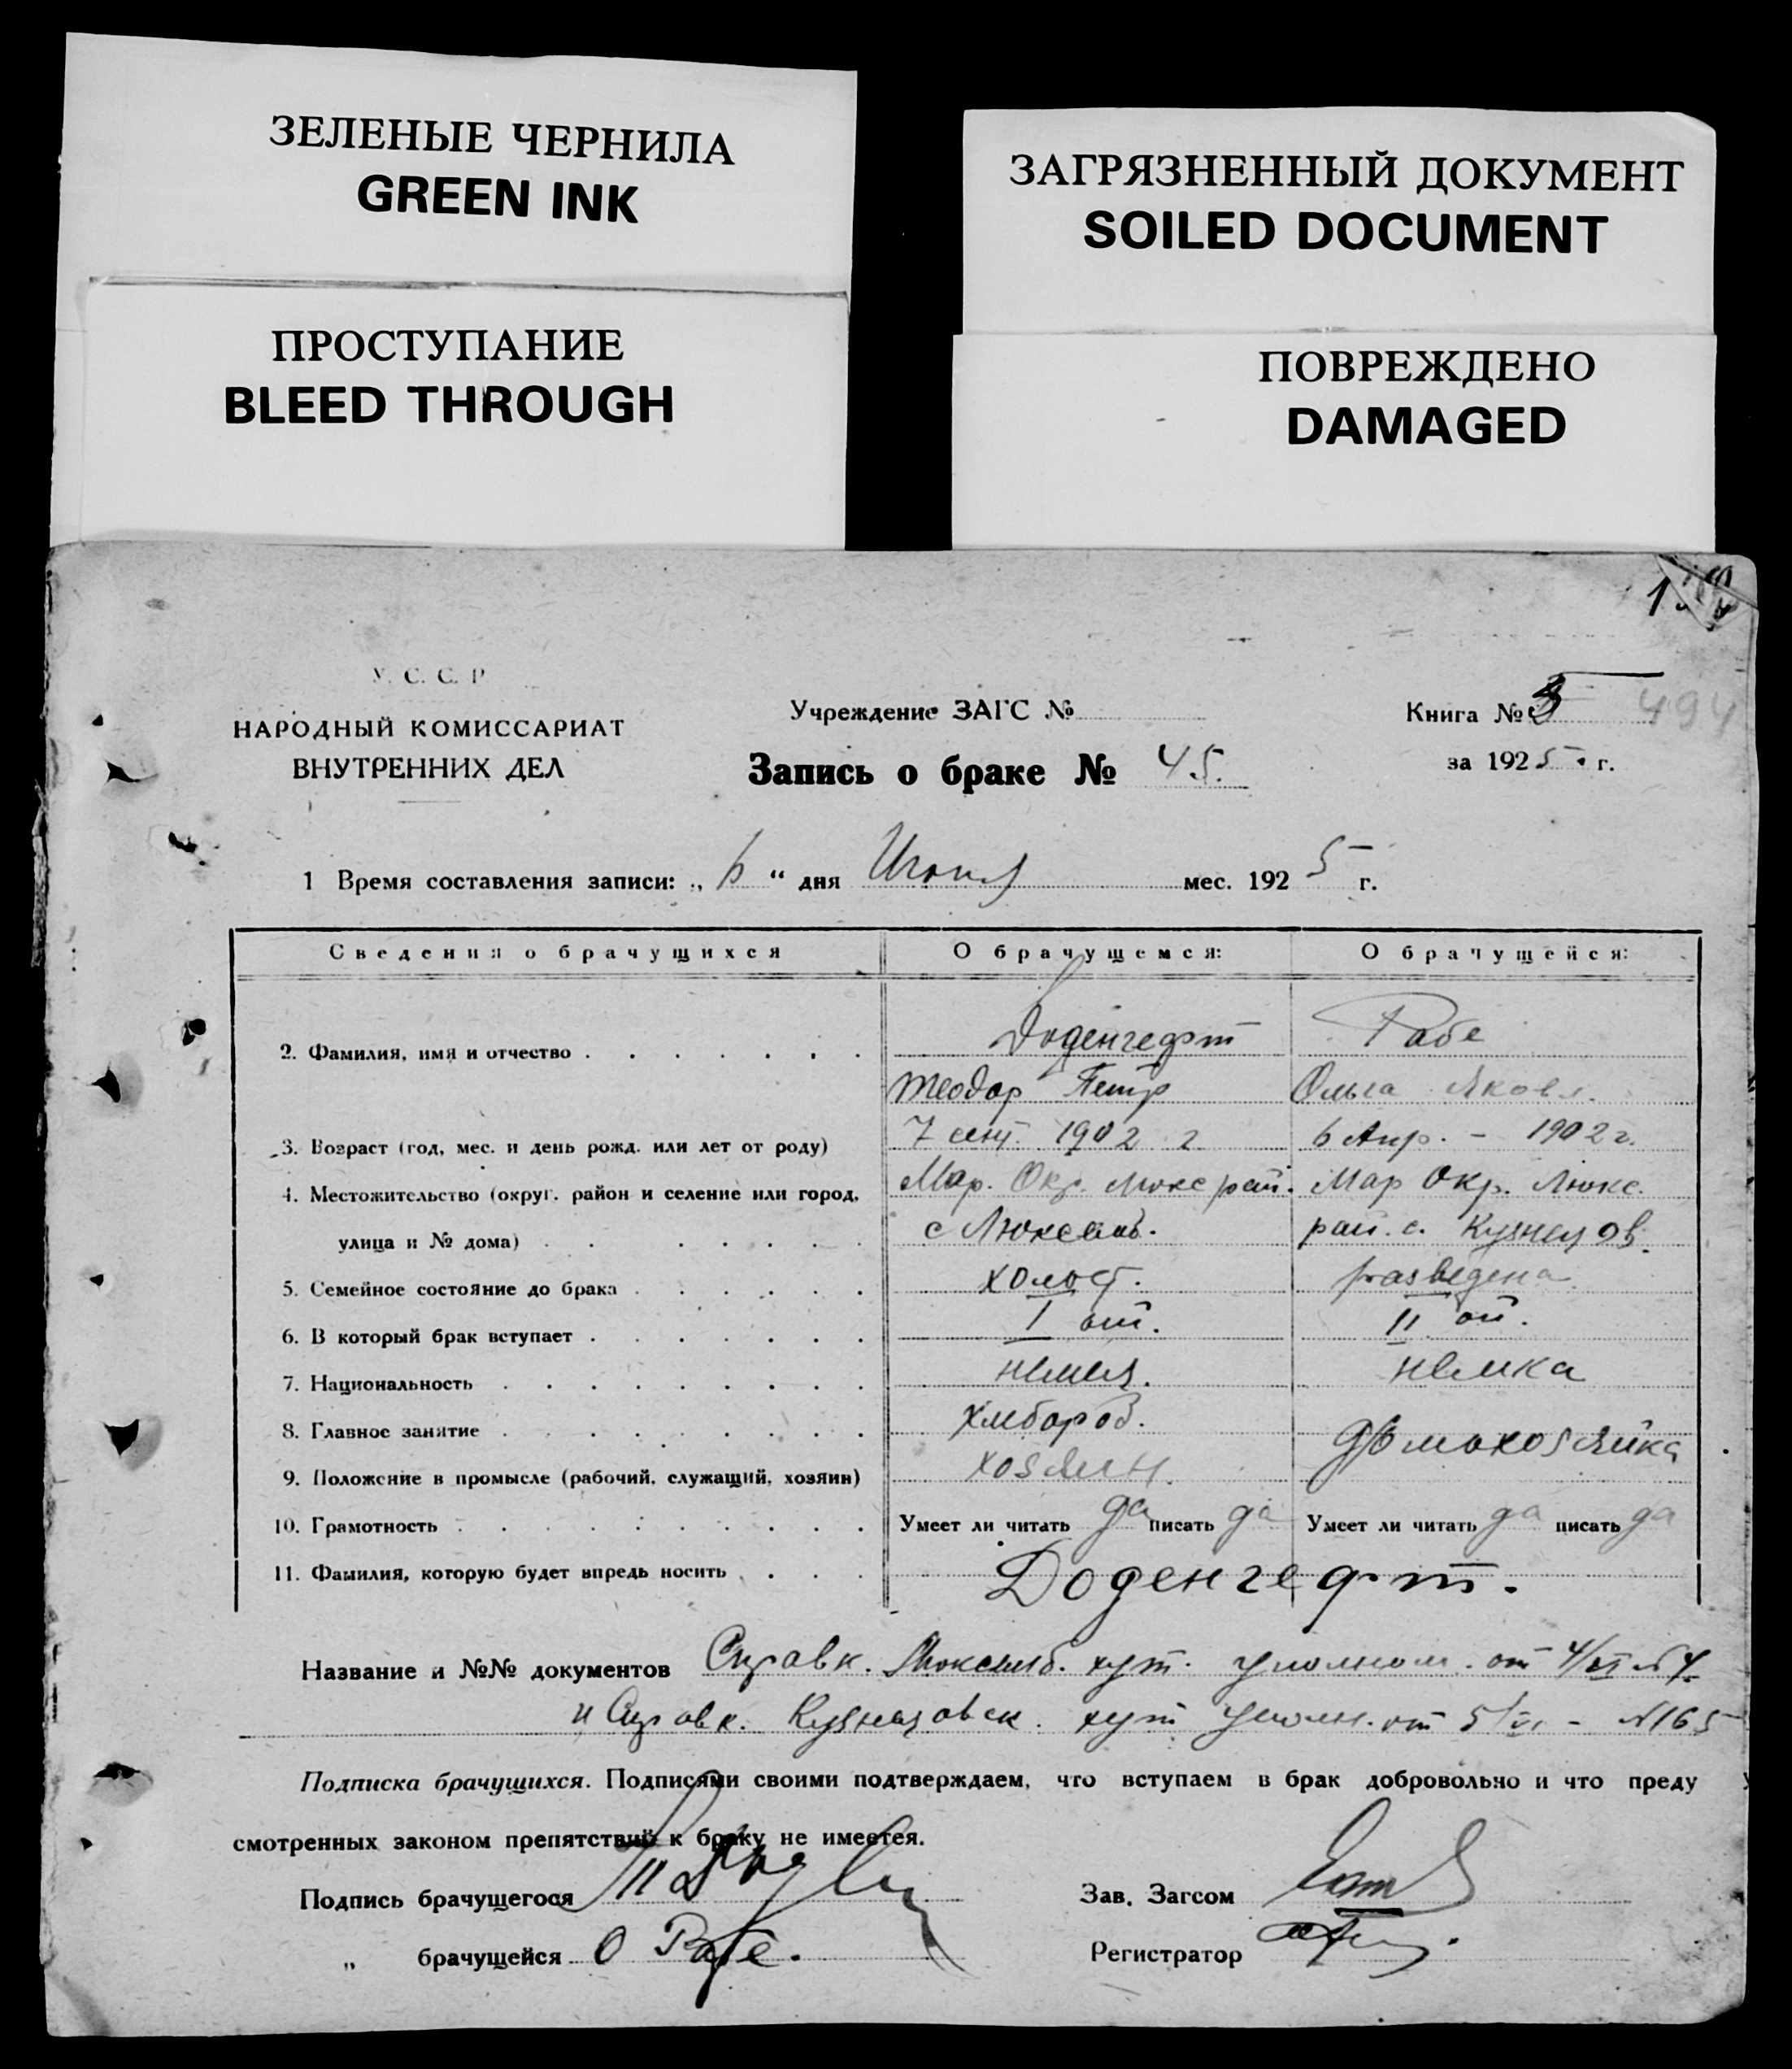 ЗЕЛЕНЫЕ ЧЕРНИЛА
GREEN INK
ЗАГРЯЗНЕННЫЙ ДОКУМЕНТ
SOILED DOCUMENT
ПРОСТУПАНИЕ
BLEED THROUGH
ПОВРЕЖДЕНО
DAMAGED
У. С. С. Р
НАРОДНЫЙ КОМИССАРИАТ
ВНУТРЕННИХ ДЕЛ
Учреждение ЗАГС №
Запись о браке № 45.
Книга №
494
за 1925 г.
1 Время составления записи: „ 6 “ дня Июня мес. 1925 г.
Сведения о брачущихся О брачущемся: О брачущейся:
2. Фамилия, имя и отчество Доденгефт Рабе
Теодор Петр Ольга Яковл.
3. Возраст (год, мес. и день рожд. или лет от роду) 7 сент. 1902 г 6 Апр. - 1902 г.
4. Местожительство (округ, район и селение или город, Мар. Окр. Люкс рай. Мар Окр. Люкс.
улица и № дома) с Люксемб. рай. с. Кузнецов.
5. Семейное состояние до брака холост. разведена
6. В который брак вступает I ый. II ой.
7. Национальность немец. немка
8. Главное занятие хлебороб. домохозяйка
9. Положение в промысле (рабочий, служащий, хозяин) хозяин.
10. Грамотность Умеет ли читать да писать да Умеет ли читать да писать да
11. Фамилия, которую будет впредь носить Доденгефт.
Название и №№ документов Справк. Люксемб. хут. уполном. от 4/VI № 4
и Справк. Кузнецовск. хут уполн. от 5/VI - № 165
Подписка брачущихся. Подписями своими подтверждаем, что вступаем в брак добровольно и что преду
смотренных законом препятствий к браку не имеется.
Подпись брачущегося
Зав. Загсом
„ брачущейся О Рабе.
Регистратор